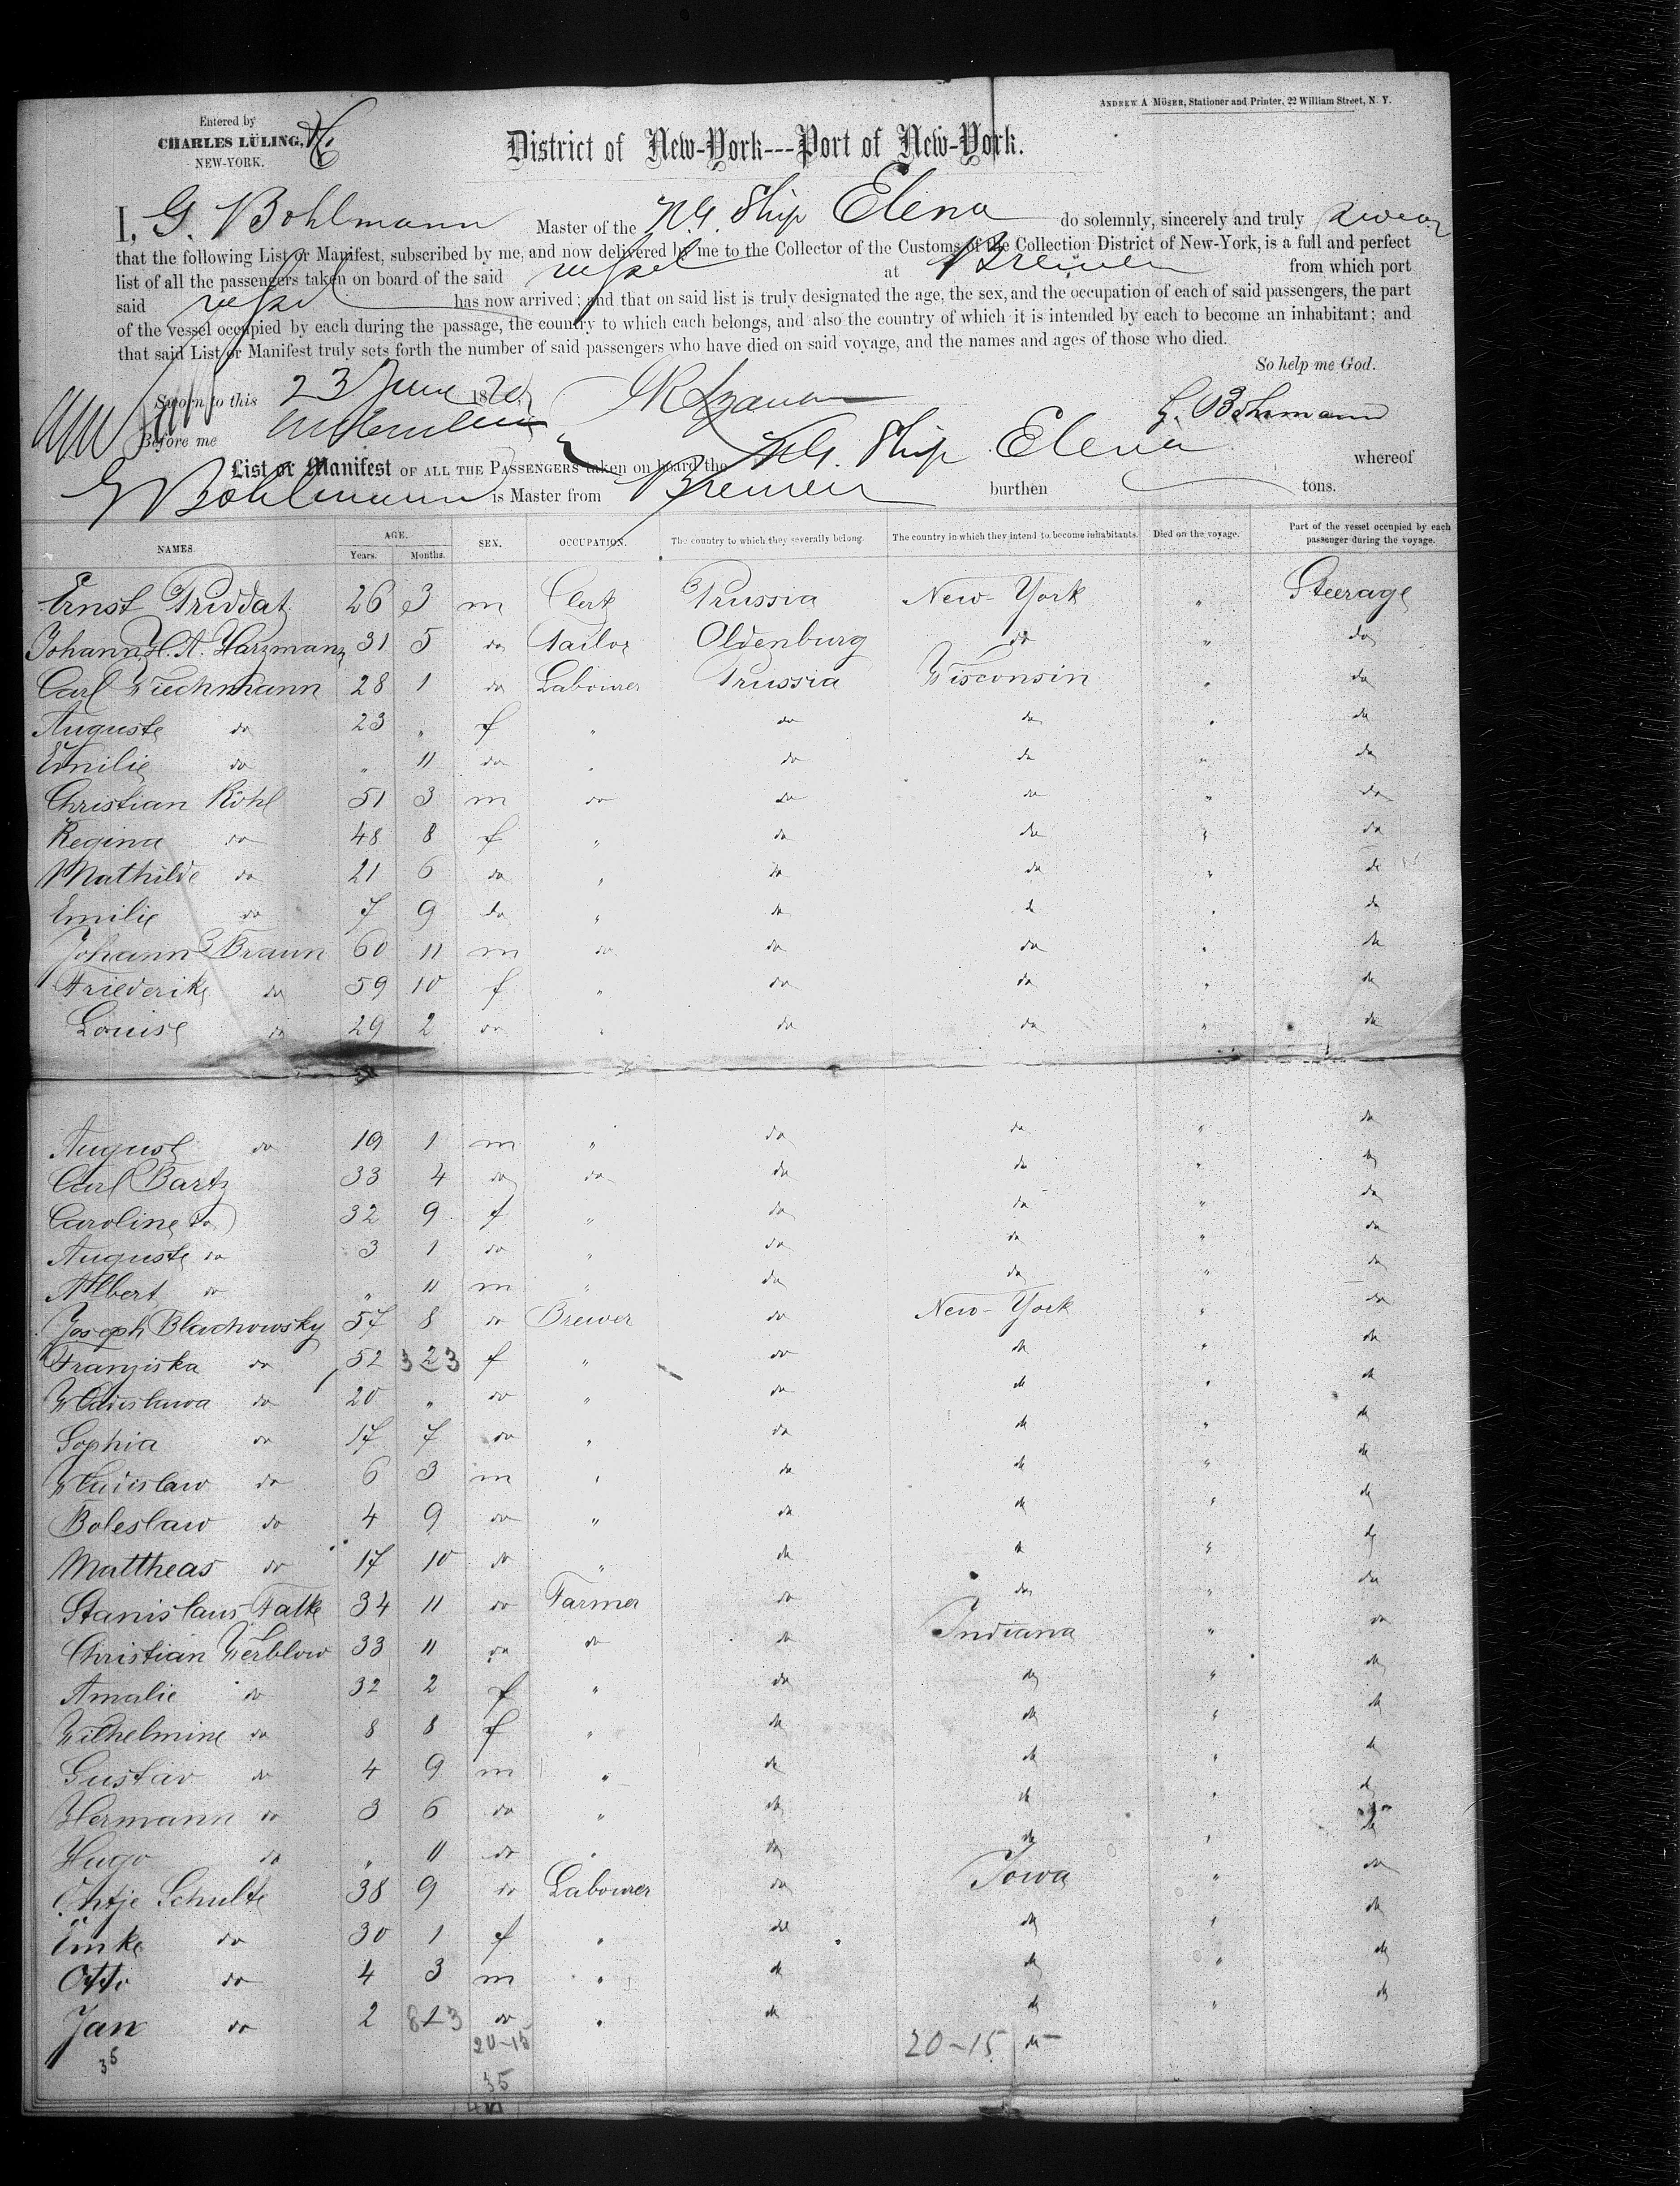 ANDREW A MÖSER, Stationer and Printer, 22 William Street, N. Y.
Entered by
CHARLES LÜLING,
NEW-YORK.
District of New-York---Port of New-York.
I, G. Bohlmann Master of the N.G. Ship Elena do solemnly, sincerely and truly swear
that the following List or Manifest, subscribed by me, and now delivered by me to the Collector of the Customs of the Collection District of New-York, is a full and perfect
list of all the passengers taken on board of the said vessel at Bremen from which port
said vessel has now arrived; and that on said list is truly designated the age, the sex, and the occupation of each of said passengers, the part
of the vessel occupied by each during the passage, the country to which each belongs, and also the country of which it is intended by each to become an inhabitant; and
that said List or Manifest truly sets forth the number of said passengers who have died on said voyage, and the names and ages of those who died.
So help me God.
Sworn to this 23 June 1870
G. Bohlmann
Before me
List or Manifest OF ALL THE PASSENGERS taken on board the N.G. Ship Elena whereof
G Bohlmann is Master from Bremen burthen tons.
NAMES. AGE. Years. Months. SEX. OCCUPATION. The country to which they severally belong. The country in which they intend to become inhabitants. Died on the voyage. Part of the vessel occupied by each passenger during the voyage.
Ernst Priddat 26 3 m Clerk Prussia New-York " Steerage
Johann H. A. Harzmann 31 5 do Sailor Oldenburg do " do
Carl Wiechmann 28 1 do Labourer Prussia Wisconsin " do
Auguste do 23 " f " do do " do
Emilie do " 11 do " do do " do
Christian Köhl 51 3 m do do do " do
Regina do 48 8 f " do do " do
Mathilde do 21 6 do " do do " do
Emilie do 7 9 do " do do " do
Johann Braun 60 11 m do do do " do
Friederike do 59 10 f " do do " do
Louise do 29 2 do " do do " do
August do 19 1 m " do do " do
Carl Bartz 33 4 do do do do " do
Caroline do 32 9 f " do do " do
Auguste do 3 1 do " do do " do
Albert do " 11 m " do do " do
Joseph Blachowsky 57 8 do Brewer do New-York " do
Franziska do 52 3 2 3 f " do do " do
Wladislawa do 20 " do " do do " do
Sophia do 17 7 do " do do " do
Wladislaw do 6 3 m " do do " do
Boleslaw do 4 9 do " do do " do
Mattheas do 17 10 do " do do " do
Stanislaus Falke 34 11 do Farmer do do " do
Christian Werblow 33 11 do do do Indiana " do
Amalie do 32 2 f " do do " do
Wilhelmine do 8 8 f " do do " do
Gustav do 4 9 m " do do " do
Hermann do 3 6 do " do do " do
Hugo do " 11 do " do do " do
Ohtje Schulte 38 9 do Labourer do Iowa " do
Emke do 30 1 f " do do " do
Otto do 4 3 m " do do " do
Jan do 2 do " do do " do
35 20-15 20-15 do
35